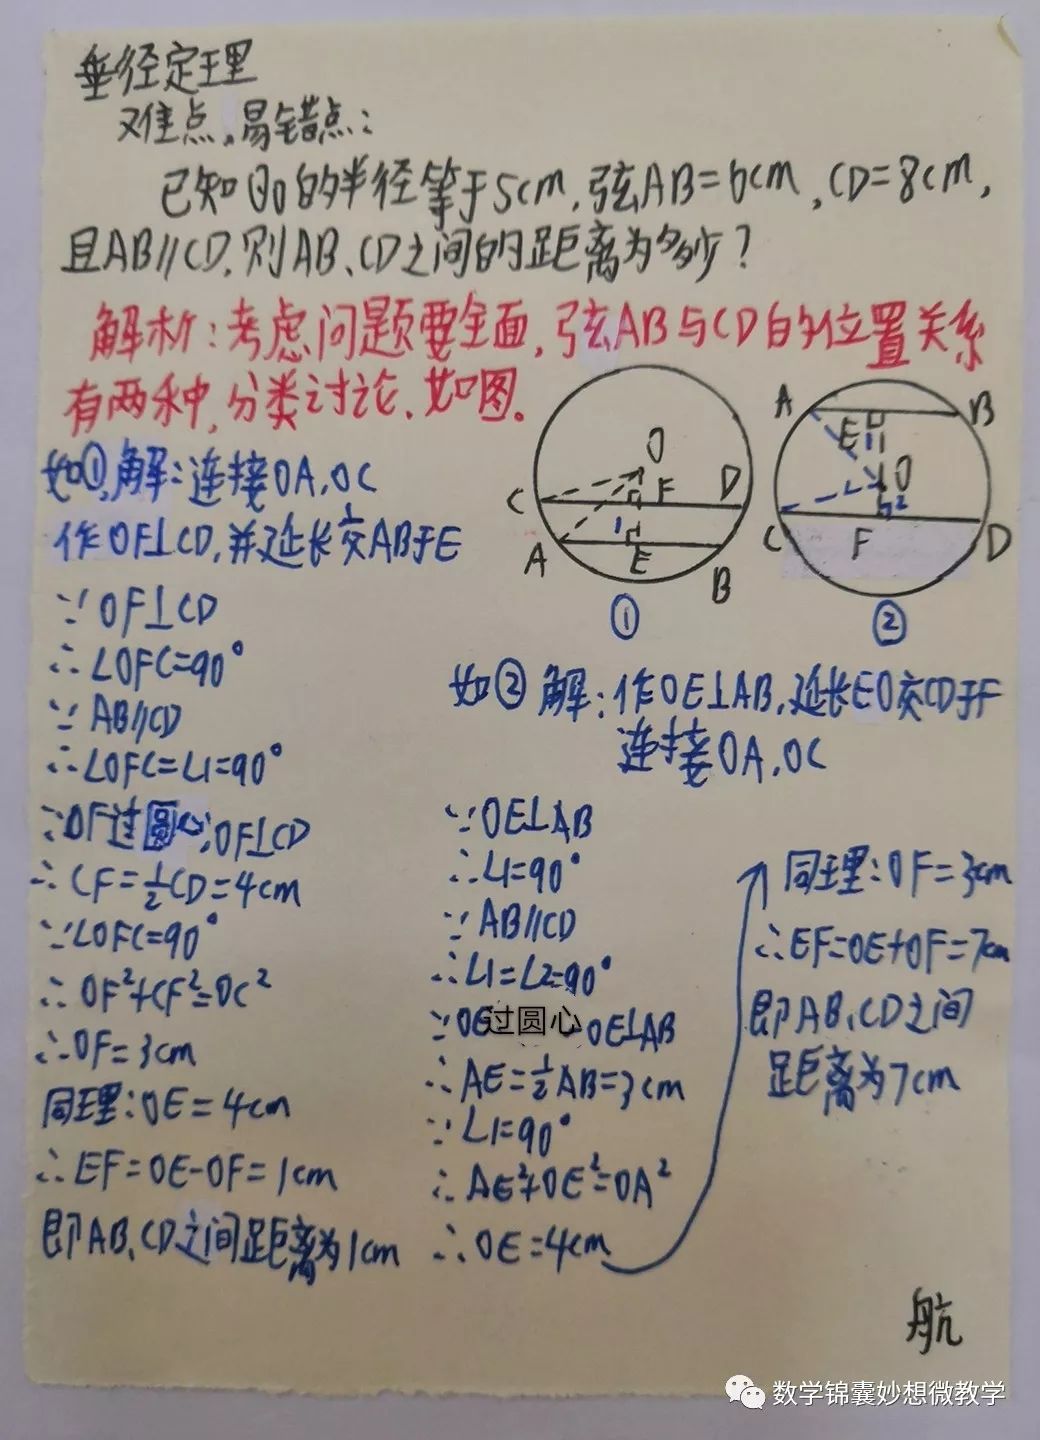 垂径定理
难点,易错点:
已知⊙O的半径等于5cm,弦AB=6cm,CD=8cm,
且AB∥CD,则AB、CD之间的距离为多少?
解析:考虑问题要全面,弦AB与CD的位置关系
有两种,分类讨论.如图。
O
C
F
D
A
1
E
B
①
A
B
E
1
O
2
C
F
D
②
如①,解:连接OA,OC
作OF⊥CD,并延长交AB于E
∵OF⊥CD
∴∠OFC=90°
∵AB∥CD
∴∠OFC=∠1=90°
∵OF过圆心,OF⊥CD
∴CF=½CD=4cm
∵∠OFC=90°
∴OF²+CF²=OC²
∴OF=3cm
同理:OE=4cm
∴EF=OE-OF=1cm
即AB、CD之间距离为1cm
如②解:作OE⊥AB,延长EO交CD于F
连接OA,OC
∵OE⊥AB
∴∠1=90°
∵AB∥CD
∴∠1=∠2=90°
∵OE过圆心 OE⊥AB
∴AE=½AB=3cm
∵∠1=90°
∴AE²+OE²=OA²
∴OE=4cm
同理:OF=3cm
∴EF=OE+OF=7cm
即AB、CD之间
距离为7cm
航
数学锦囊妙想微教学